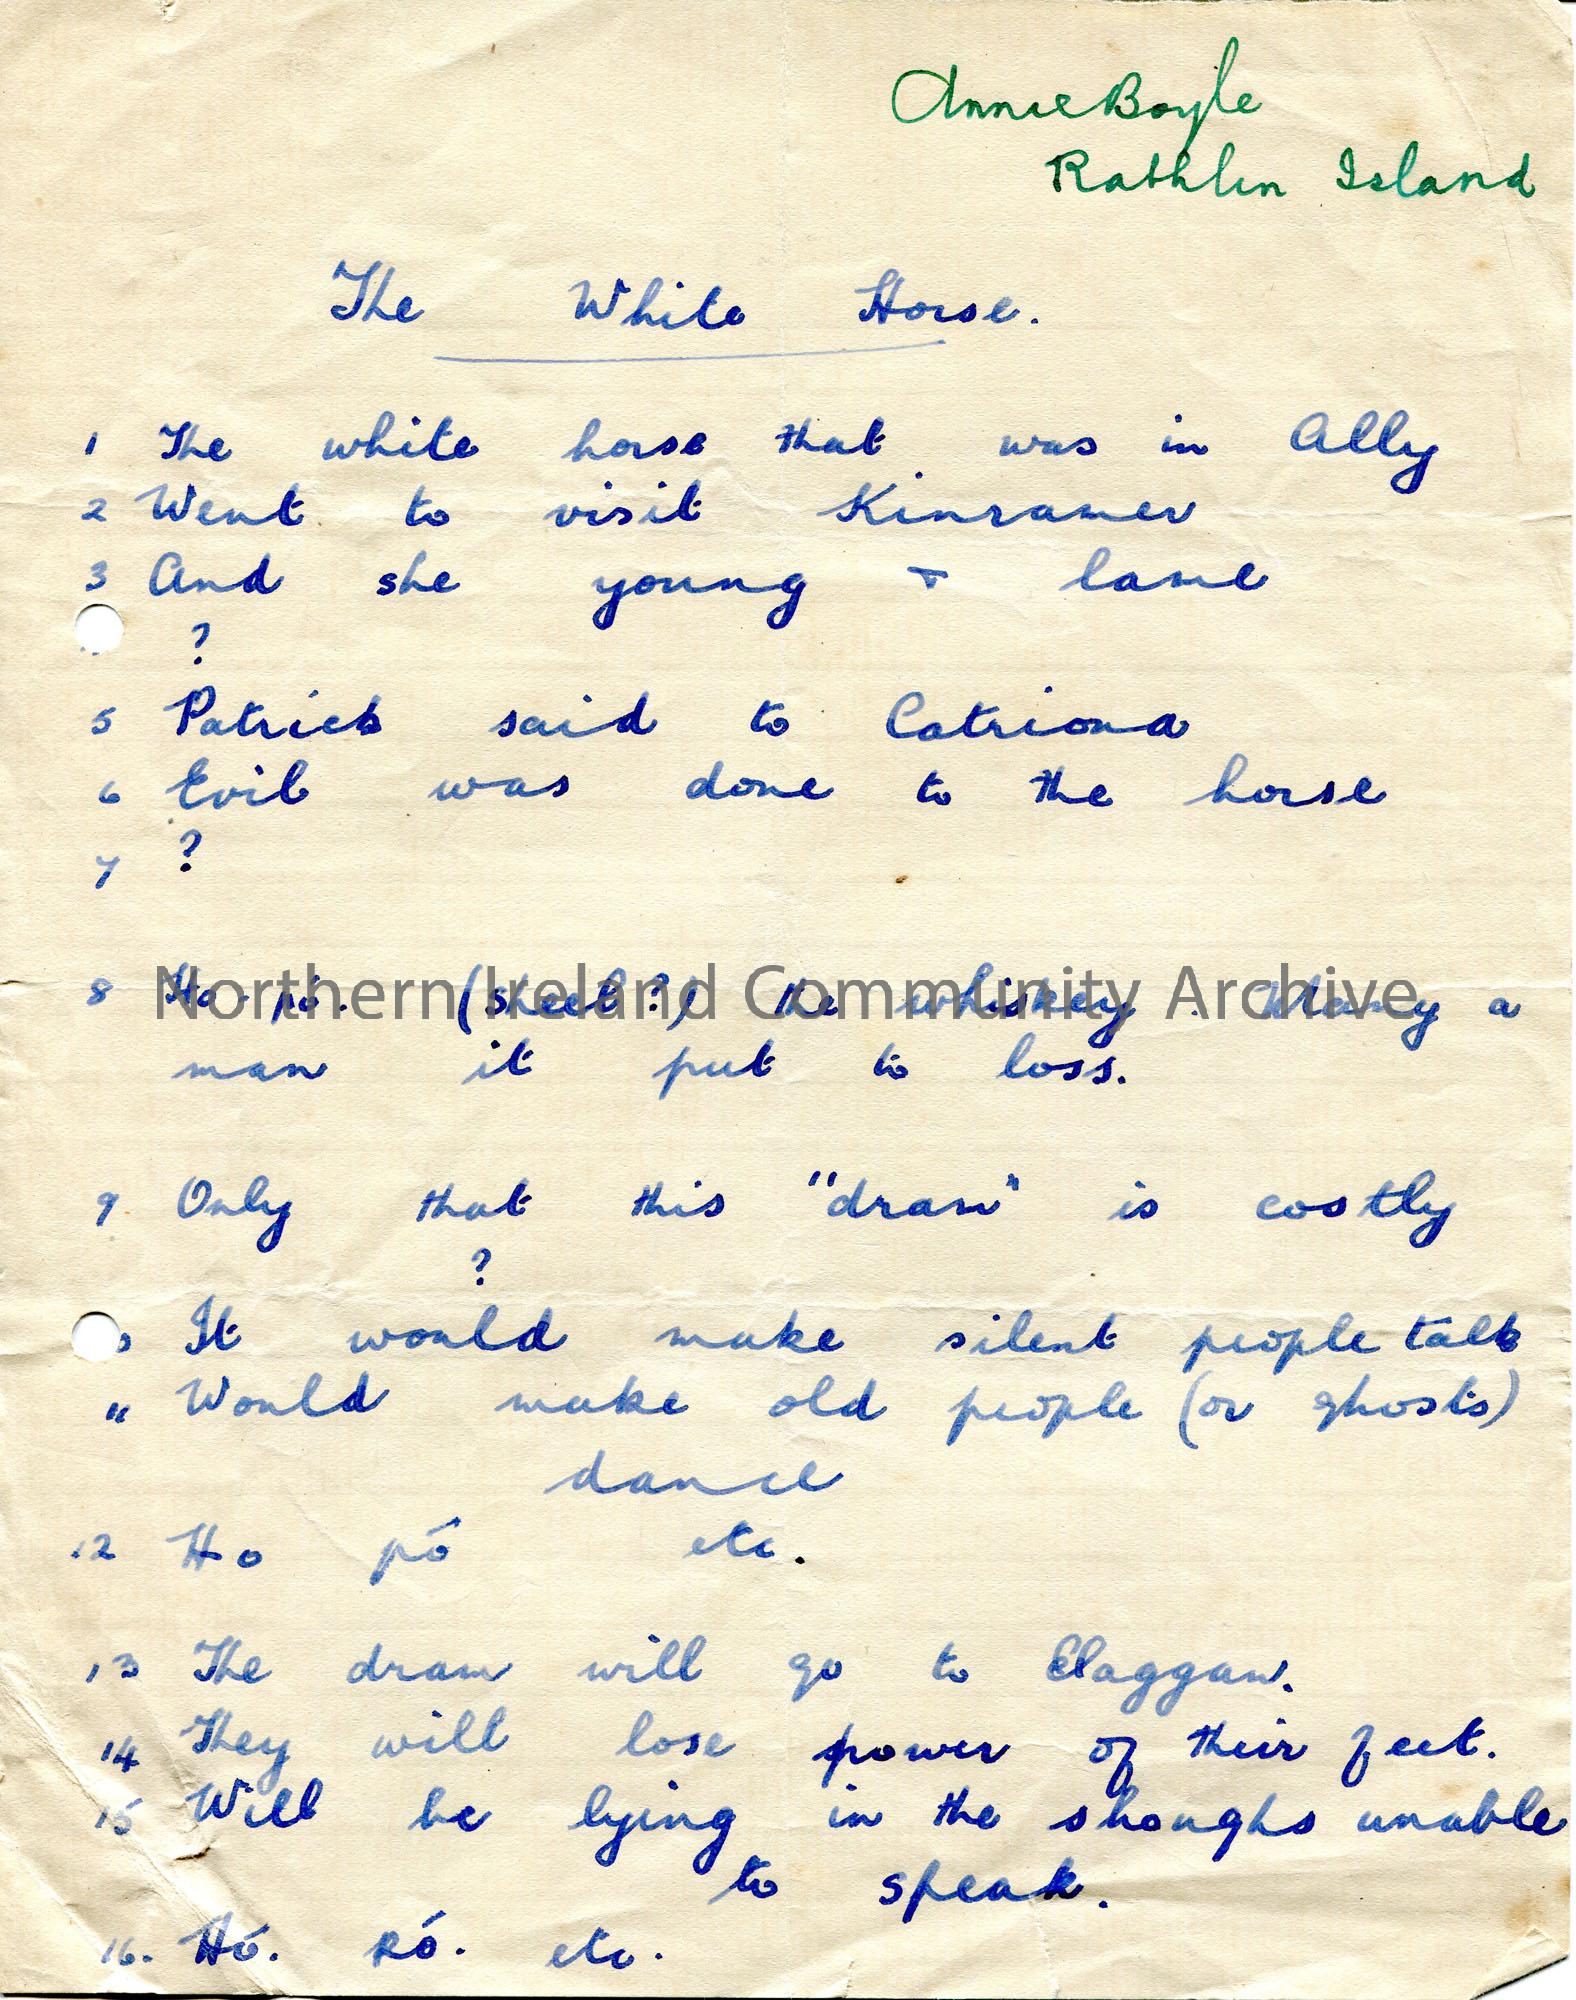 Annie Boyle
Rathlin Island
The White Horse.
1 The white horse that was in Ally
2 Went to visit Kinramer
3 And she young & lame
?
5 Patrick said to Catriona
6 Evil was done to the horse
7 ?
8 Ho-ró. (sheel?) the whiskey. Many a
man it put to loss.
Northern Ireland Community Archive
9. Only that this "dram" is costly
?
It would make silent people talk
11 Would make old people (or ghosts)
dance
12 Ho ró etc.
13 The dram will go to Claggan.
14 They will lose power of their feet.
15 Will be lying in the shoughs unable
to speak.
16. Hó. Ró. etc.